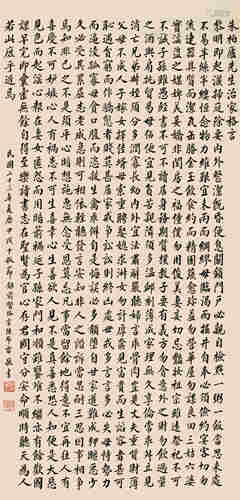 朱柏廬先生治家格言
黎明即起灑掃庭除要內外整潔既昏便息關鎖門戶必親自檢點一粥一飯當思來處
不易半絲半縷恆念物力維艱宜未雨而綢繆毋臨渴而掘井自奉必須儉約宴客切勿
流連器具質而潔瓦缶勝金玉飲食約而精園蔬愈珍饈勿營華屋勿謀良田三姑六婆
實淫盜之媒婢美妾嬌非閨房之福僮僕勿用俊美妻妾切忌豔妝祖宗雖遠祭祀不可
不誠子孫雖愚經書不可不讀居身務期質樸教子要有義方勿貪意外之財勿飲過量
之酒與肩挑貿易毋佔便宜見貧苦親鄰須多溫卹刻薄成家理無久享倫常乖舛立見
消亡兄弟叔姪須分多潤寡長幼內外宜法肅辭嚴聽婦言乖骨肉豈是丈夫重資財薄
父母不成人子嫁女擇佳婿毋索重聘娶媳求淑女勿計厚奩見富貴而生諂容者最可
恥遇貧窮而作驕態者賤莫甚居家戒爭訟訟則終凶處世戒多言言多必失毋恃勢力
而凌逼孤寡毋貪口腹而恣殺生禽乖僻自是悔誤必多頹惰自甘家道難成狎昵惡少
久必受其累屈志老成急則可相依輕聽發言安知非人之譖愬當忍耐三思因事相爭
焉知非己之不是須平心暗想施惠無念受恩莫忘凡事當留餘地得意不宜再往人有
喜慶不可生妒嫉心人有禍患不可生喜幸心善欲人見不是真善惡恐人知便是大惡
見色而起淫心報在妻女匿怨而用暗箭禍延子孫家門和順雖饔飧不繼亦有餘歡國
課早完即囊橐無餘自得至樂讀書志在聖賢為官心存君國守分安命順時聽天為人
若此庶乎近焉
民國二十三年夏曆甲戌